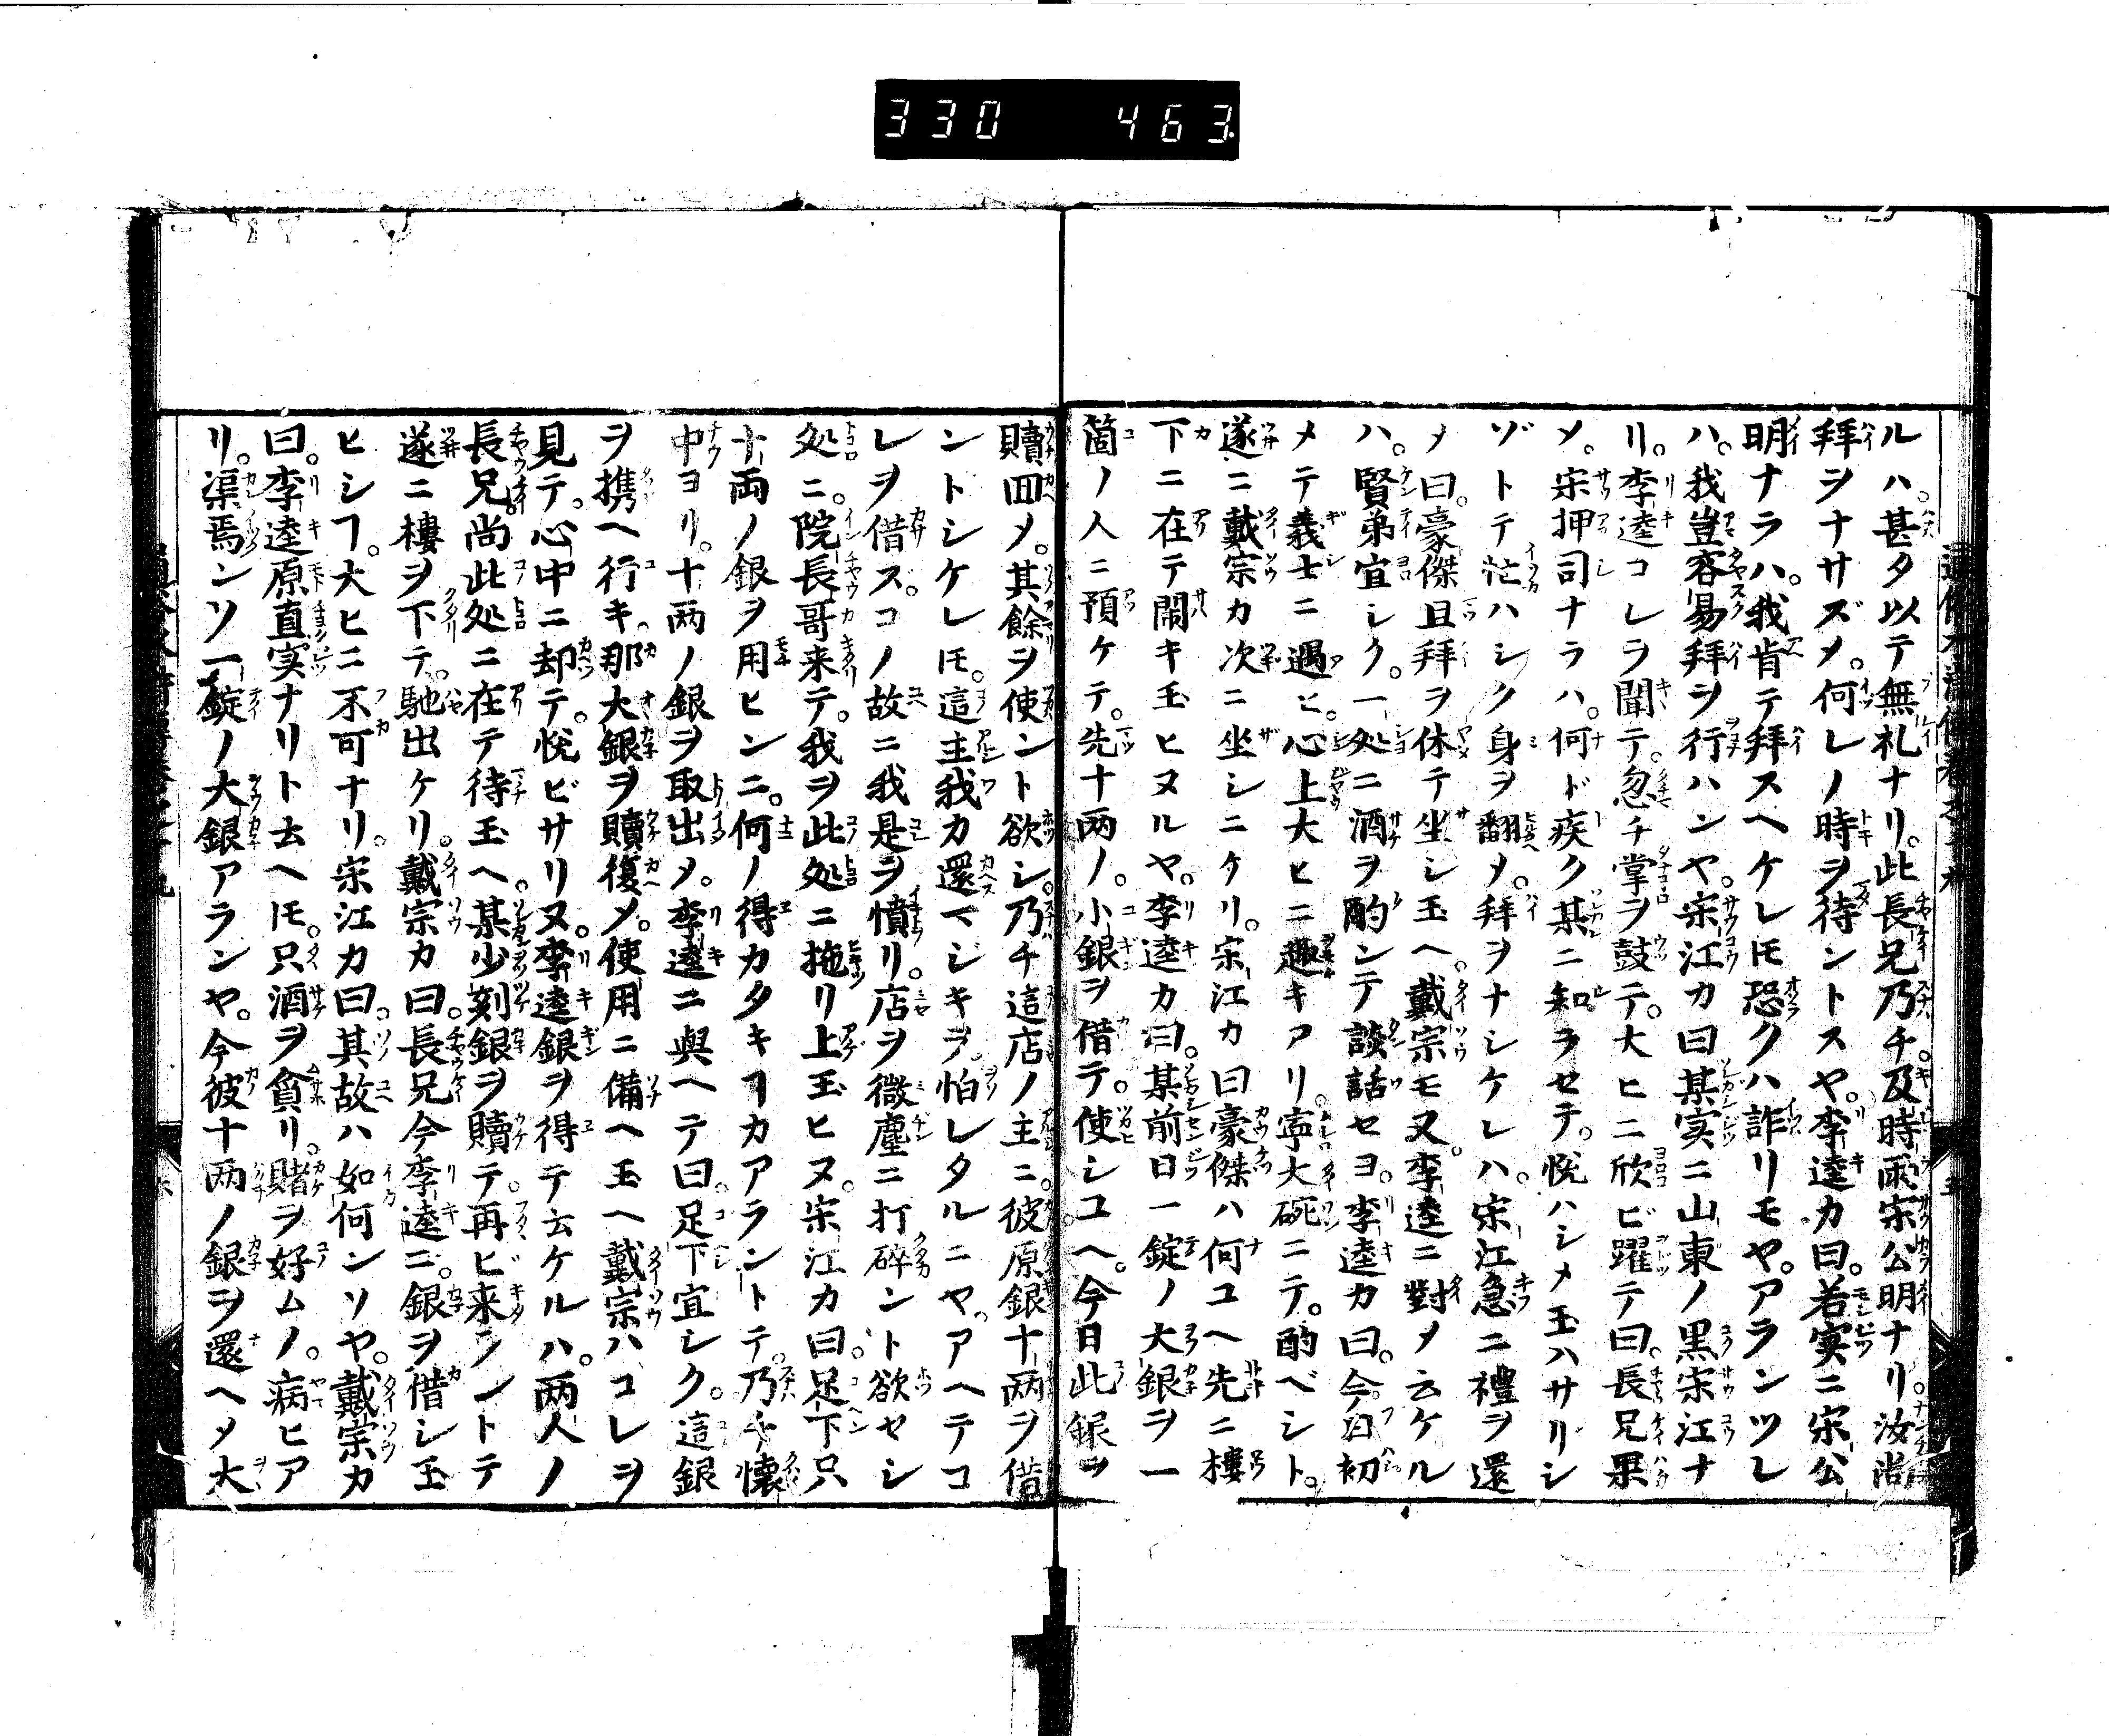 330 463
ルハ。甚タ以テ無礼ナリ。此長兄乃チ。及時雨宋公明ナリ。汝尚
拜ヲナサズメ。何レノ時ヲ待ントスヤ。李逵カ曰。若実ニ宋公
明ナラハ。我肯テ拜スヘケレ𪜈恐クハ詐リモヤ。アランツレ
ハ。我豈容易拜ヲ行ハンヤ。宋江カ曰某実ニ山東ノ黒宋江ナ
リ。李逵コレヲ聞テ。忽チ掌ヲ鼓テ。大ヒニ欣ビ躍テ曰。長兄果
メ。宋押司ナラハ。何ド疾ク某ニ知ラセテ。悦ハシメ玉ハサリシ
ゾトテ忙ハシク身ヲ翻メ。拜ヲナシケレハ。宋江急ニ禮ヲ還
メ曰。豪傑且拜ヲ休テ坐シ玉ヘ。戴宗モ又。李逵ニ對メ云ケル
ハ。賢弟宜シク。一処ニ酒ヲ酌ンテ談話セヨ。李逵カ曰。今日初
メテ義士ニ遇ヒ。心上大ヒニ趣キアリ。寧大碗ニテ。酌ベシト。
遂ニ戴宗カ次ニ坐シニケリ。宋江カ曰豪傑ハ何ユヘ先ニ樓
下ニ在テ鬧キ玉ヒヌルヤ。李逵カ曰。某前日一錠ノ大銀ヲ一
箇ノ人ニ預ケテ。先十两ノ。小銀ヲ借テ。使シユヘ。今日此銀ヲ
贖回メ。其餘ヲ使ント欲シ。乃チ這店ノ主ニ。彼原銀十两ヲ借
ントシケレ𪜈。這主我カ還マジキヲ。怕レタルニヤ。アヘテコ
レヲ借ズ。コノ故ニ我是ヲ憤リ。店ヲ微塵ニ打碎ント欲セシ
処ニ。院長哥来テ。我ヲ此処ニ拖リ上玉ヒヌ。宋江カ曰。足下只
十両ノ銀ヲ用ヒンニ。何ノ得カタキヿカアラントテ。乃チ懐
中ヨリ。十两ノ銀ヲ取出メ。李逵ニ與ヘテ曰。足下宜シク。這銀
ヲ携ヘ行キ。那大銀ヲ贖復メ。使用ニ備ヘ玉ヘ戴宗ハコレヲ
見テ。心中ニ却テ。悦ビサリヌ。李逵銀ヲ得テ云ケルハ。两人ノ
長兄。尚此処ニ在テ待玉ヘ。某少刻銀ヲ贖テ。再ビ来ランントテ
遂ニ樓ヲ下テ。馳出ケリ。戴宗カ曰。長兄今李逵ニ。銀ヲ借シ玉
ヒシヿ。大ヒニ不可ナリ。宋江カ曰。其故ハ如何ンソヤ。戴宗カ
曰。李逵原直実ナリト云ヘ𪜈。只酒ヲ貪リ。賭ヲ好ムノ。病ヒア
リ。渠焉ンソ一錠ノ大銀アランヤ。今彼十两ノ銀ヲ還ヘメ大